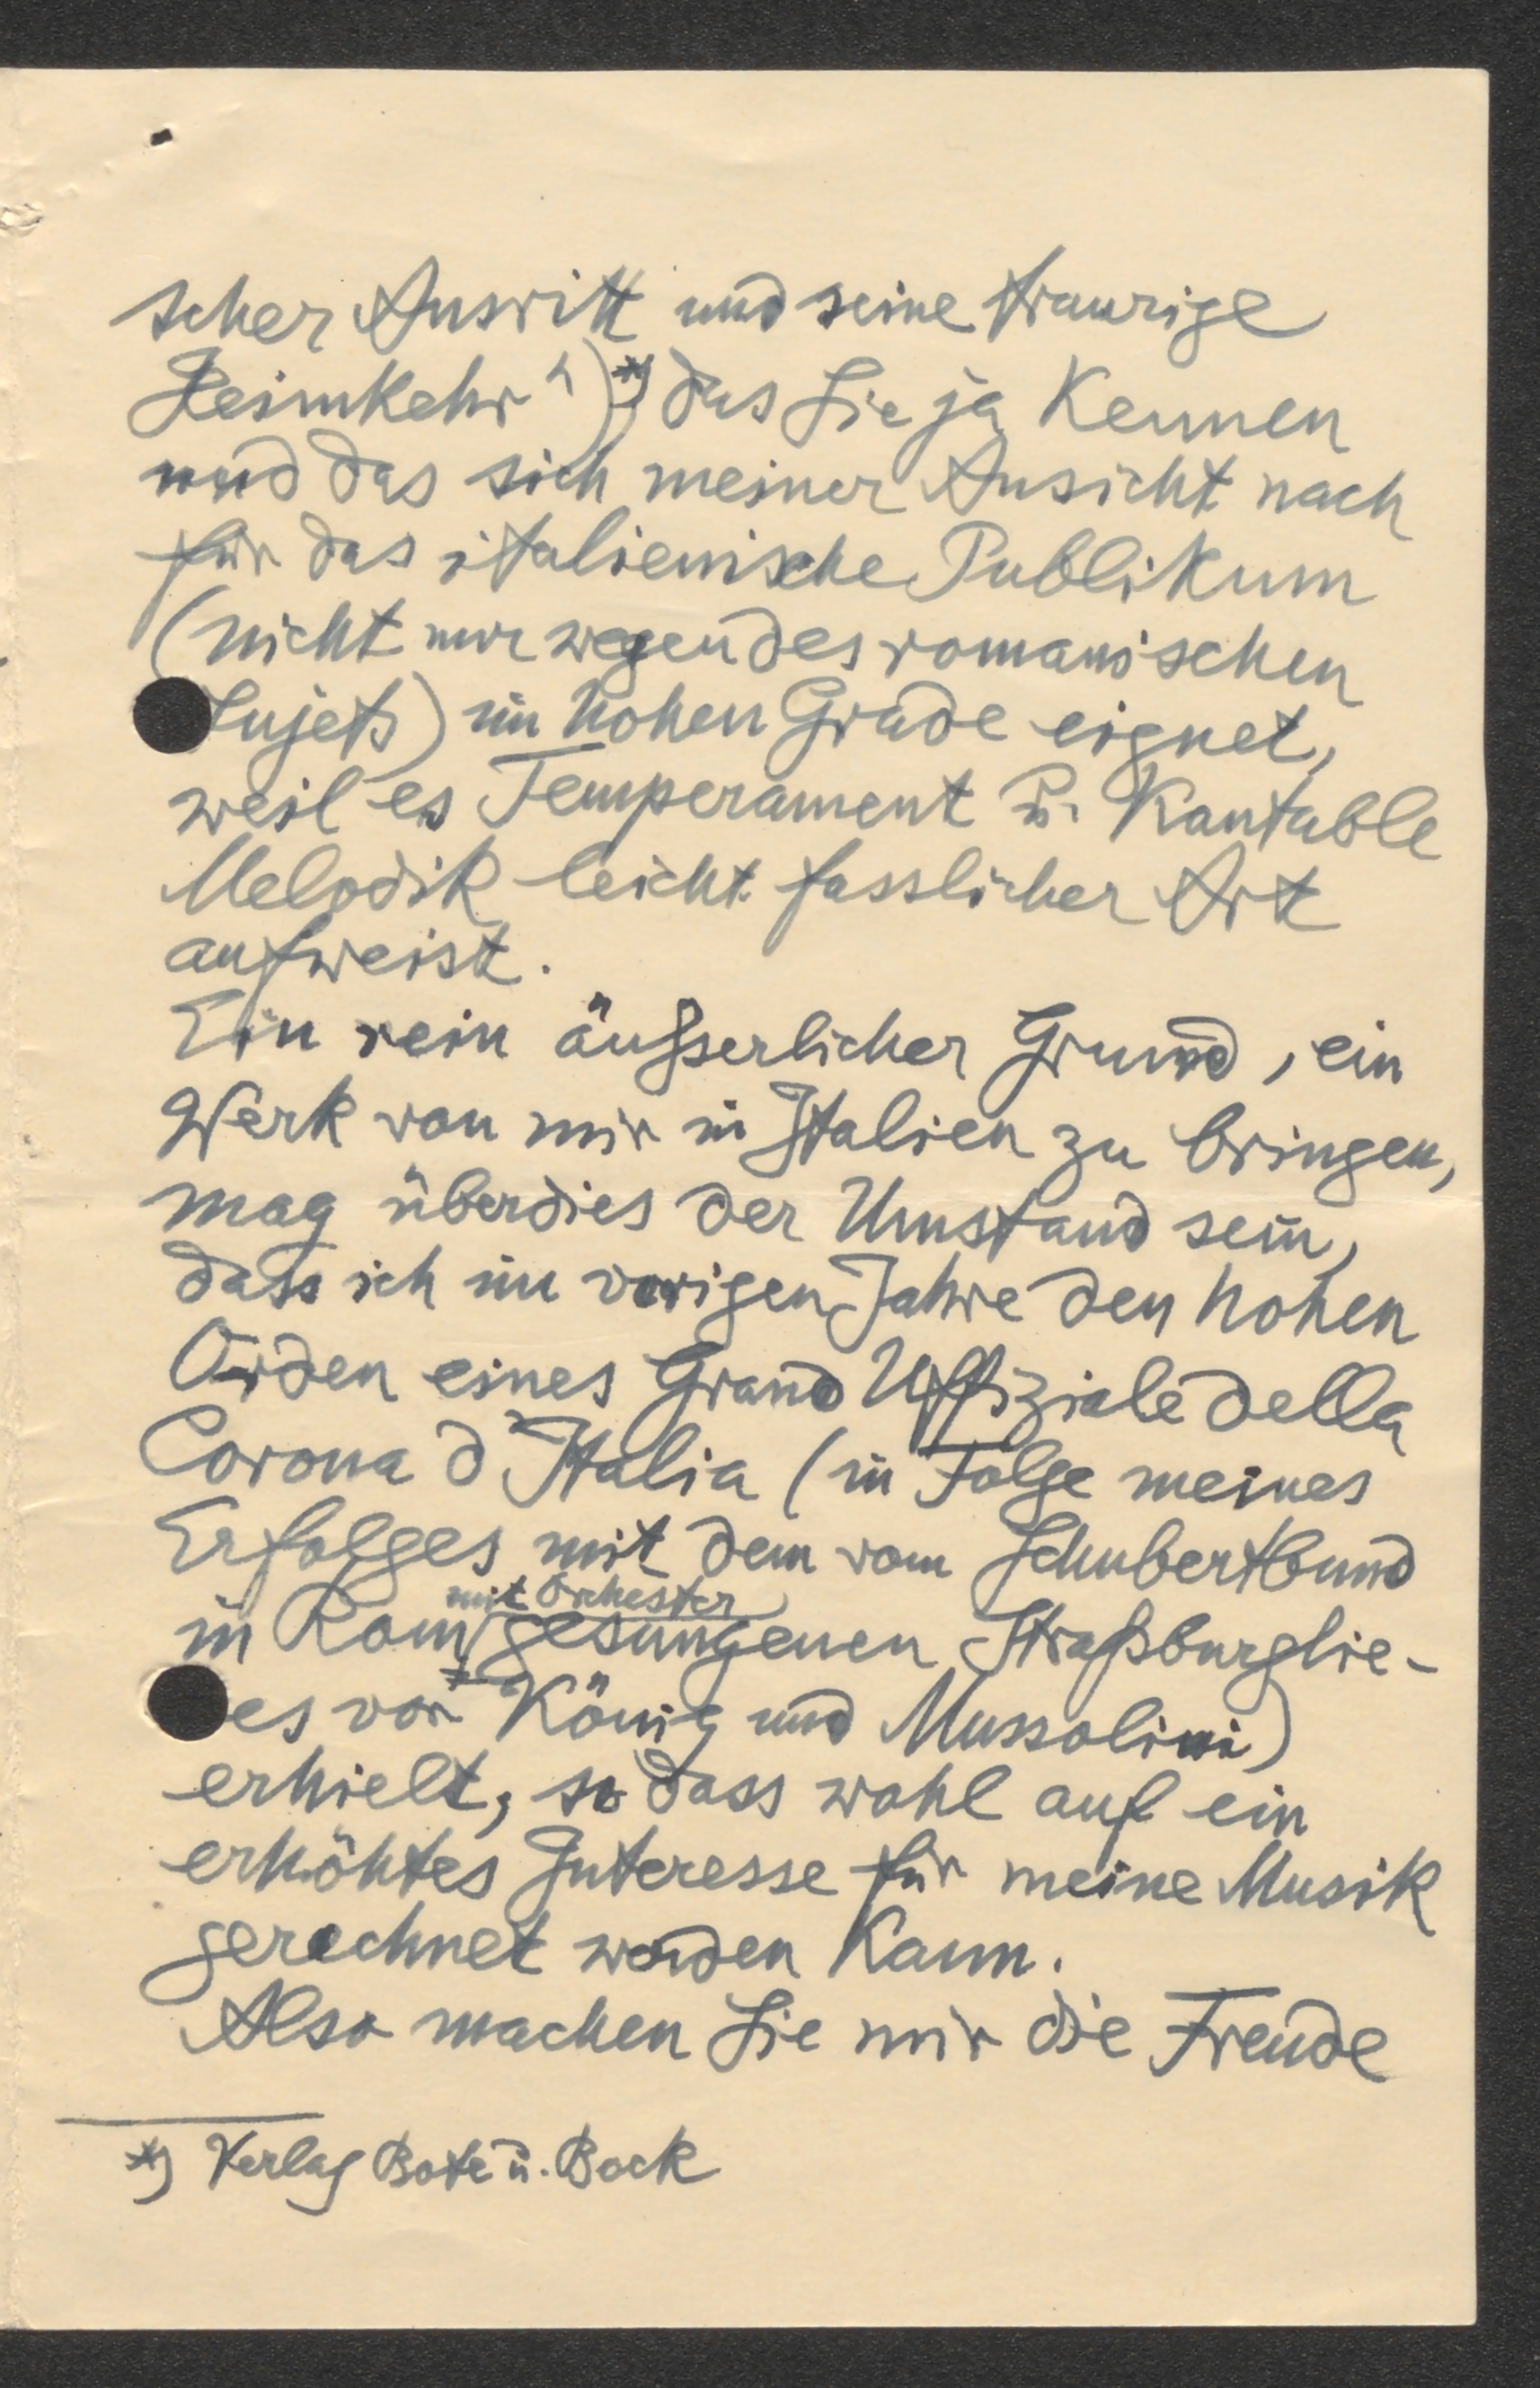 scher Ausritt und seine traurige
Heimkehr")*) das Sie ja kennen
und das sich meiner Ansicht nach
für das italienische Publikum
(nicht nur wegen des romanischen
Sujets) im hohen Grade eignet,
weil es Temperament u. Kantable
Melodik leicht fasslicher Art
aufweist.
Ein rein äußserlicher Grund, ein
Werk von mir in Italien zu bringen,
mag überdies der Umstand sein,
dass ich im vorigen Jahre den hohen
Orden eines Grand Uffiziale della
Corona d'Italia (in Folge meines
Erfolges mit dem vom Schubertbund
mit Orchester
in Rom gesungenen Straßburglie-
es vor König und Mussolini)
erhielt, so dass wohl auf ein
erhöhtes Interesse für meine Musik
gerechnet werden kann.
Also machen Sie mir die Freude
*) Verlag Bote u. Bock